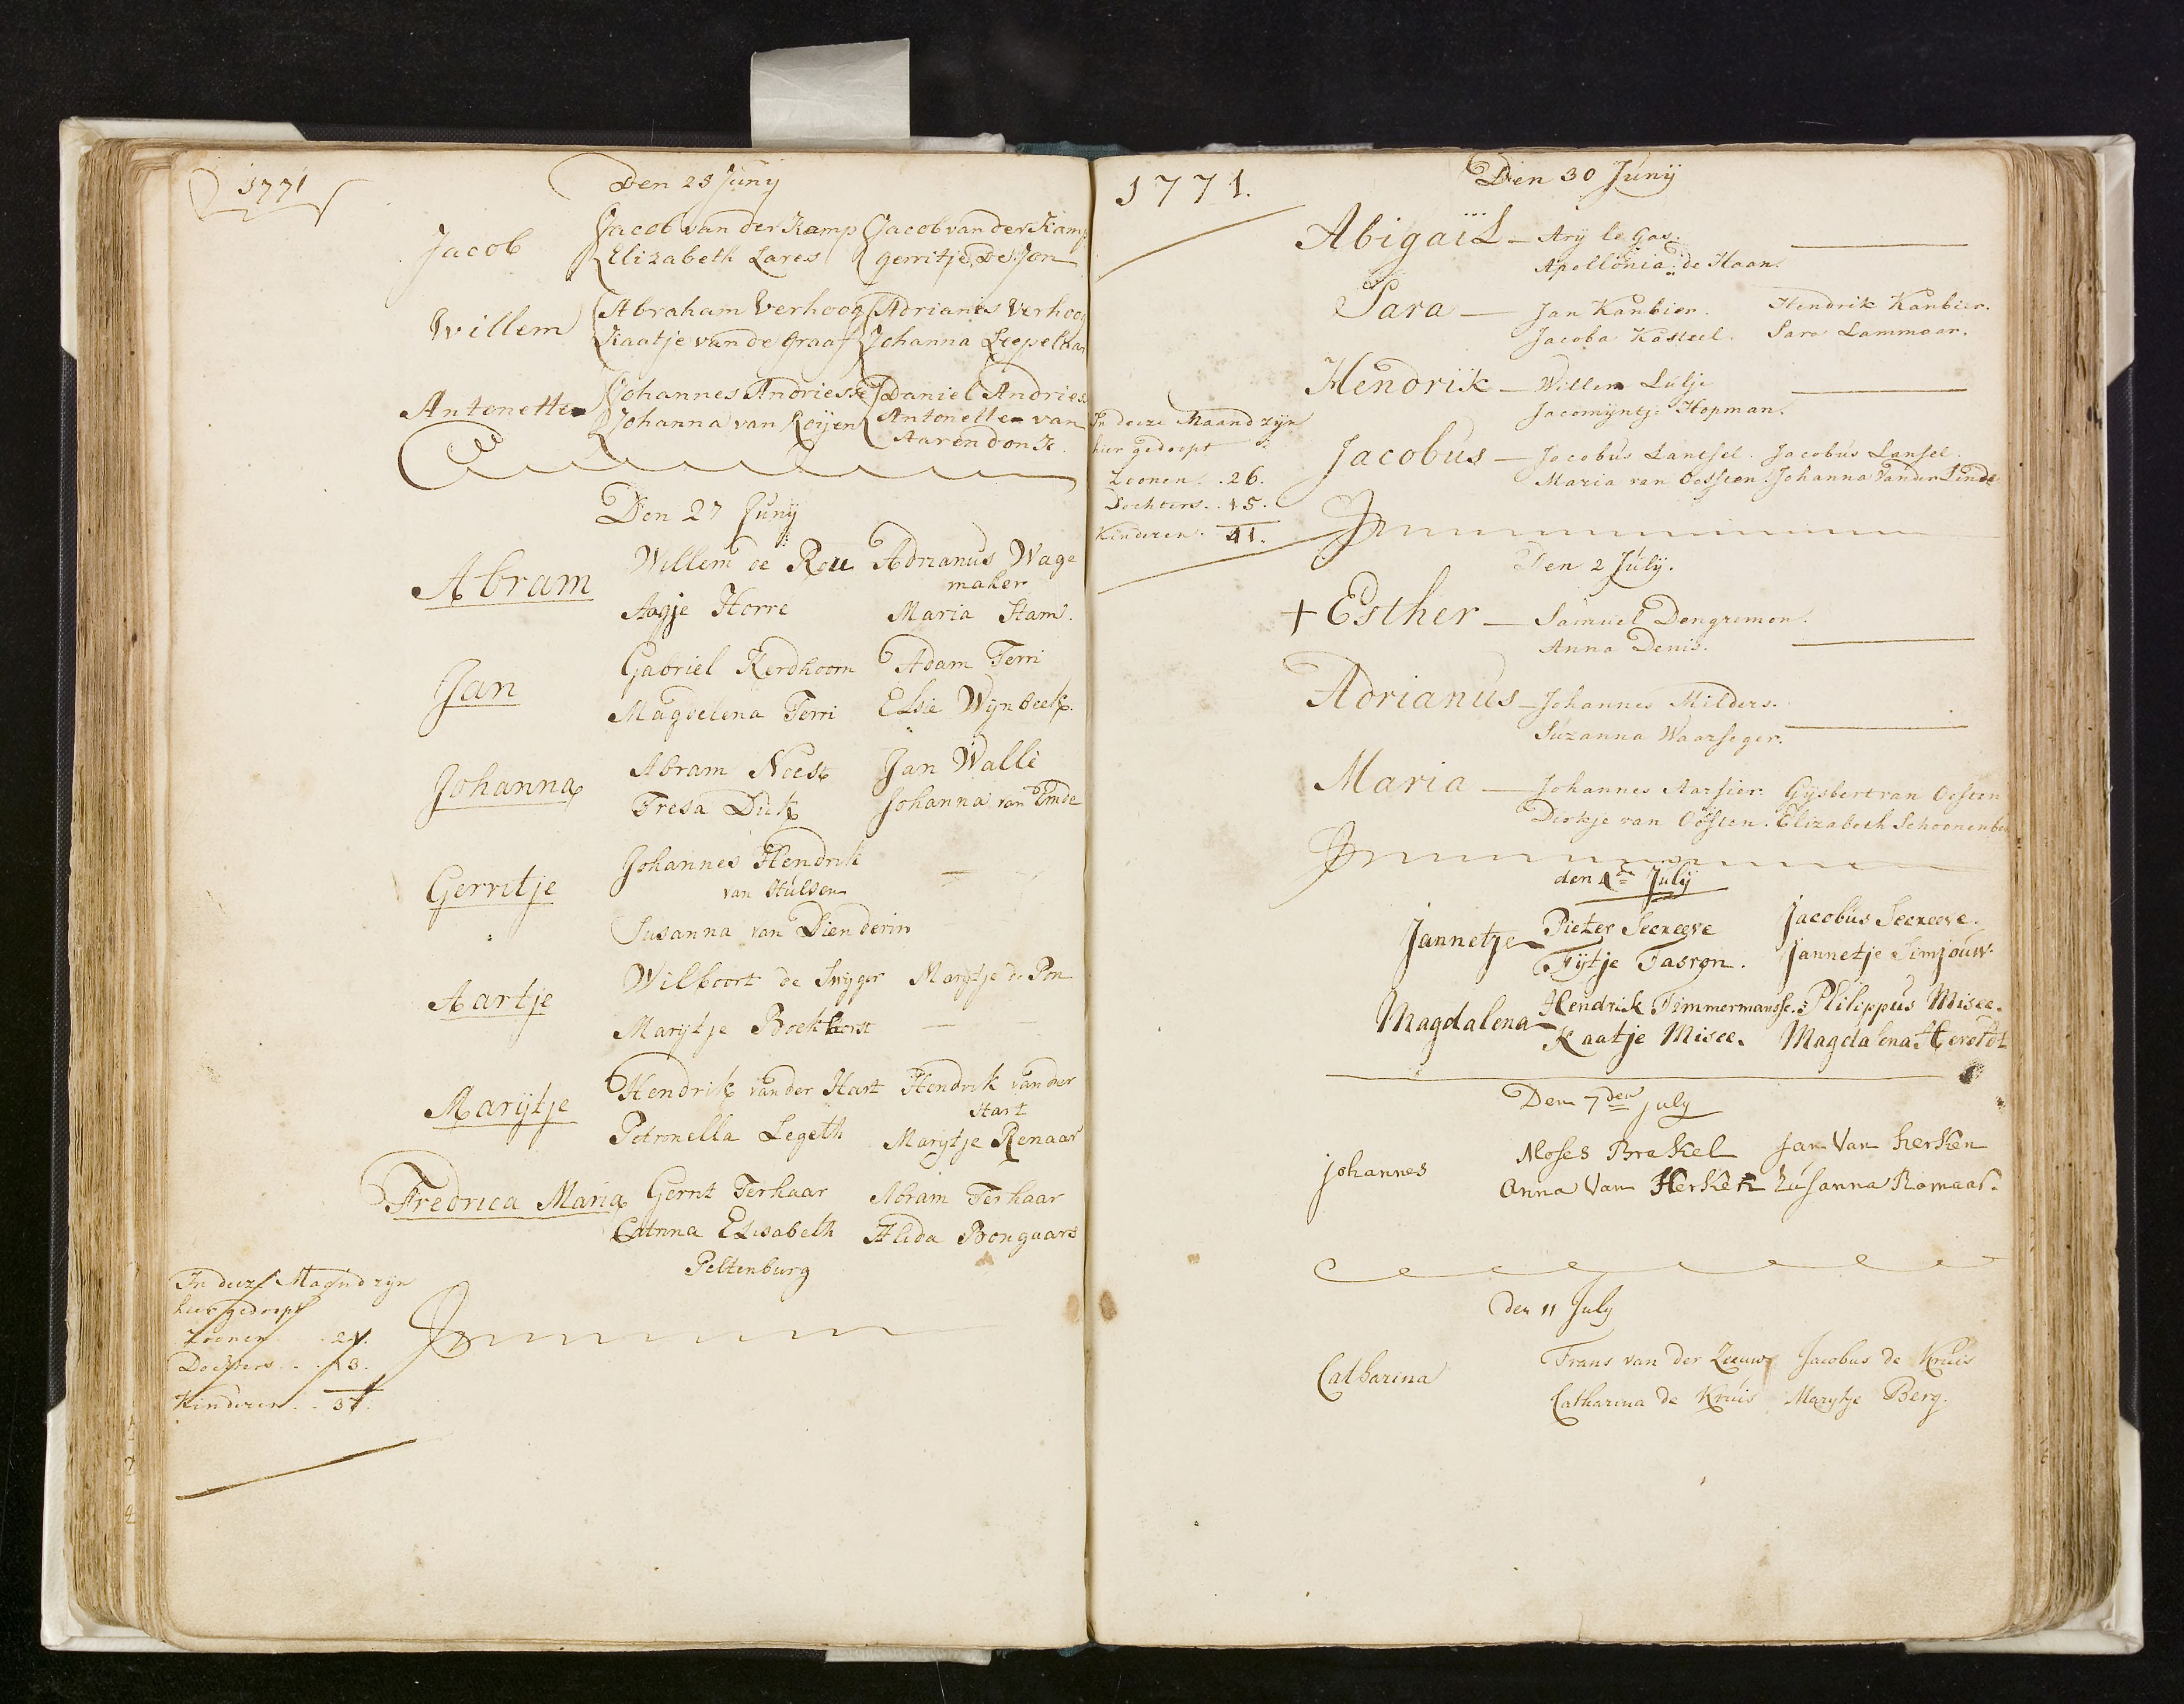 1771
Den 23 Juny
Jacob
Jacob van der Kamp Jacob van der Kamp
Elizabeth Lares gerritje De Jon
Willem
Abraham Verhoog Adrianis Verhoog
Kaatje van de Graaf Johanna Leepelhar
Antonetta
Johannes Andriesse Daniel Andries
Johanna van Roijen Antonetta van
Aarendonk
Den 27 Junij
Abram
Willem de Rou Adrianus Wage
maker
Aagje Horre Maria Stam.
Jan
Gabriel Kerdhoorn Adam Terri
Magdelena Terri Elsie Wijnbeek.
Johanna
Abram Noest Jan Walle
Tresa Dick Johanna van Emde
Gerritje
Johannes Hendrik
van Hulsen
Susanna van Dienderin
Aartje
Wilboort de Snijger Marijtje de Pon
Marijtje Boekhorst
Marijtje
Hendrik van der Hart Hendrik van der
Hart
Petronella Legeth Marijtje Renaar
Fredrica Maria
Gerrit Terhaar Abram Terhaar
Catrina Elisabeth Alida Bongaars
Peltenburg
In deeze Maand zijn
hier gedoopt
Zoonen . . 24.
Dochters . . 13.
Kinderen . . 37.
1771.
Den 30 Junij
Abigaïl - Arij le Gas.
Apollonia de Haan.
Sara - Jan Kanbier. Hendrik Kanbier.
Jacoba Kasteel. Sara Lammaar.
Hendrik - Willem Lutje
Jacomijntje Hopman.
In deeze Maand zijn
hier gedoopt
Zoonen . . 26.
Dochters . . 15.
Kinderen . 41.
Jacobus - Jacobus Lantsel. Jacobus Lansel.
Maria van Oossten. Johanna van der Linde
Den 2 Julij.
+ Esther - Samuel Dengremon.
Anna Denis.
Adrianus - Johannes Milders.
Suzanna Waarseger.
Maria - Johannes Aarsier. Gijsbert van Oosten
Dirkje van Oosten. Elizabeth Schoonenbe
den 4de Julij
Jannetje - Pieter Seereese Jacobus Seereese.
Fijtje Tasron. Jannetje Simjouw.
Magdalena - Hendrik Timmermansse. Philippus Misee.
Kaatje Misee. Magdalena Heroldt
Den 7den july
johannes
Moses Brakel Jan Van herken
Anna Van Herken Zusanna Romaar.
den 11 July
Catharina
Frans van der Zeeuw Jacobus de Kruis
Catharina de Kruis Marijtje Berg.